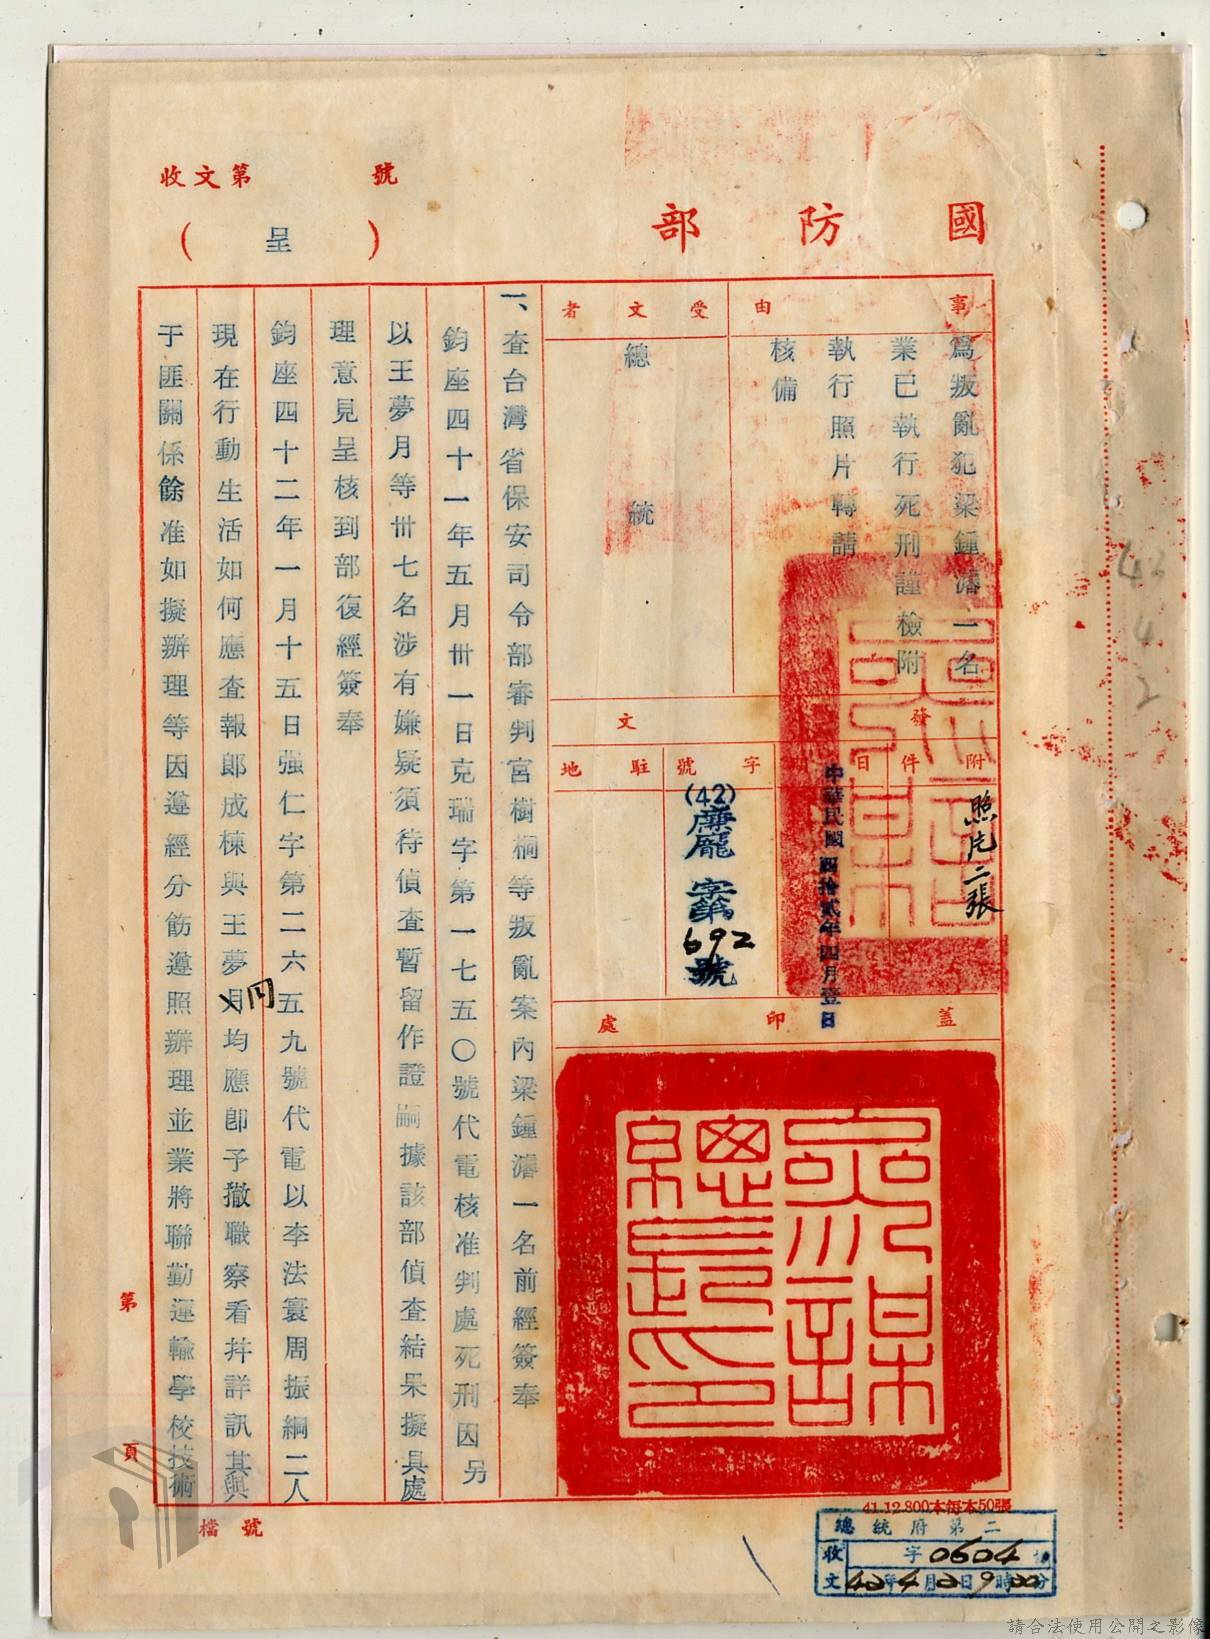 國防部
收文第 號
(呈)
事由
為叛亂犯梁鍾濬一名
業已執行死刑謹檢附
執行照片轉請
核備
受文者
總統
發文
附件
照片二張
日期
中華民國四拾貳年四月壹日
字號
(42)廉龐字第692號
駐地
蓋印處
參謀總長之印
一、查台灣省保安司令部審判宮樹桐等叛亂案內梁鍾濬一名前經簽奉
鈞座四十一年五月卅一日克瑞字第一七五〇號代電核准判處死刑因另
以王夢月等卅七名涉有嫌疑須待偵查暫留作證嗣據該部偵查結果擬具處
理意見呈核到部復經簽奉
鈞座四十二年一月十五日强仁字第二六五九號代電以李法寰周振綱二人
現在行動生活如何應查報郎成棟與王夢月冃均應即予撤職察看并詳訊其與
于匪關係餘准如擬辦理等因遵經分飭遵照辦理並業將聯勤運輸學校技術
第
頁
檔號
41.12.800本每本50張
總統府第二
收文 字0604號
42年4月2日9時00分
42
4
2
請合法使用公開之影像